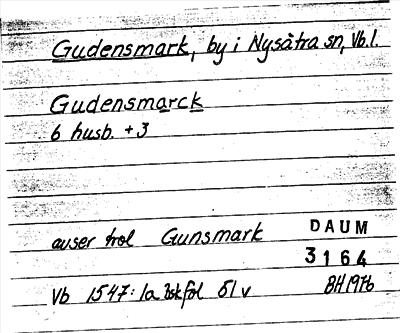 Gudensmark, by i Nysätra sn, Vb. l.
Gudensmarck
6 husb. + 3
avser trol Gunsmark
DAUM
3164
Vb 1547: 1a bskfol 51 v
BH 1976